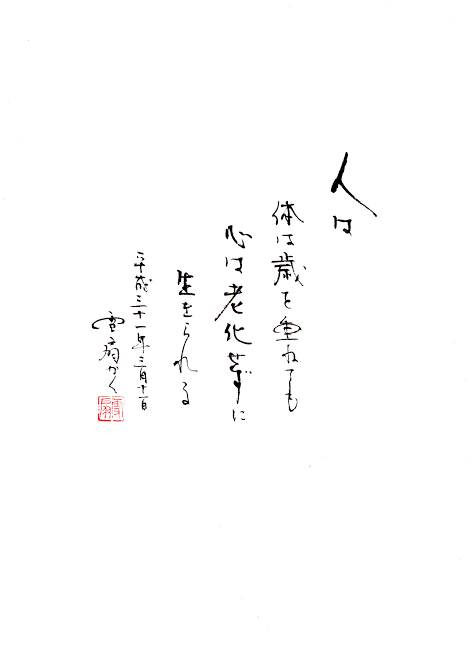 人は
体は歳を重ねても
心は老化せずに
生きられる
平成三十一年三月十一日
雪扇かく